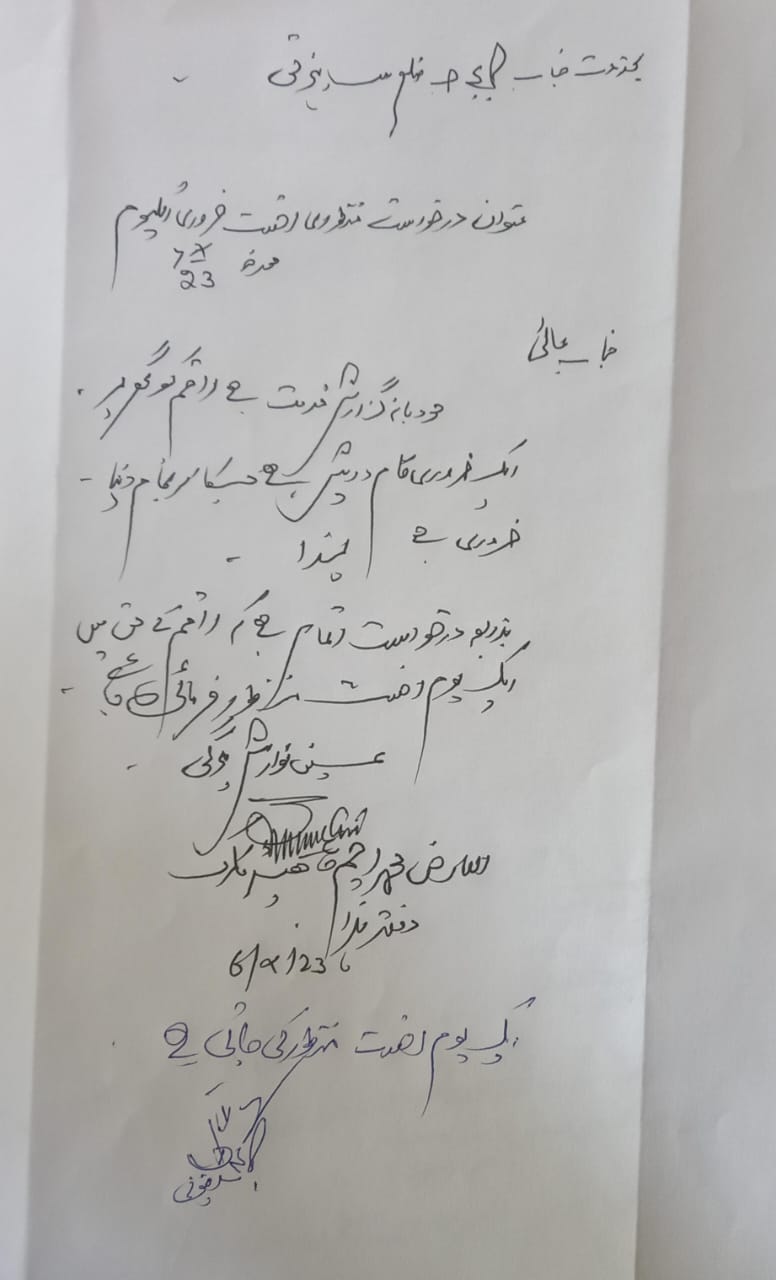 بخدمت جناب ضلع سدھنوتی
عنوان درخواست منظوری رخصت ضروری ایک یوم
مورخہ 23
جناب عالی
مودبانہ گزارش خدمت ہے راقم کو گھر پر
ایک ضروری کام درپیش ہے جسکا سرانجام دینا
ضروری ہے لہذا
بذریعہ درخواست التماس ہے کہ راقم کے حق میں
ایک یوم رخصت منظور فرمائی جائے
عین نوازش ہوگی
العارض محمد
دفتر ہذا
ایک یوم رخصت منظور کی جاتی ہے
سدھنوتی